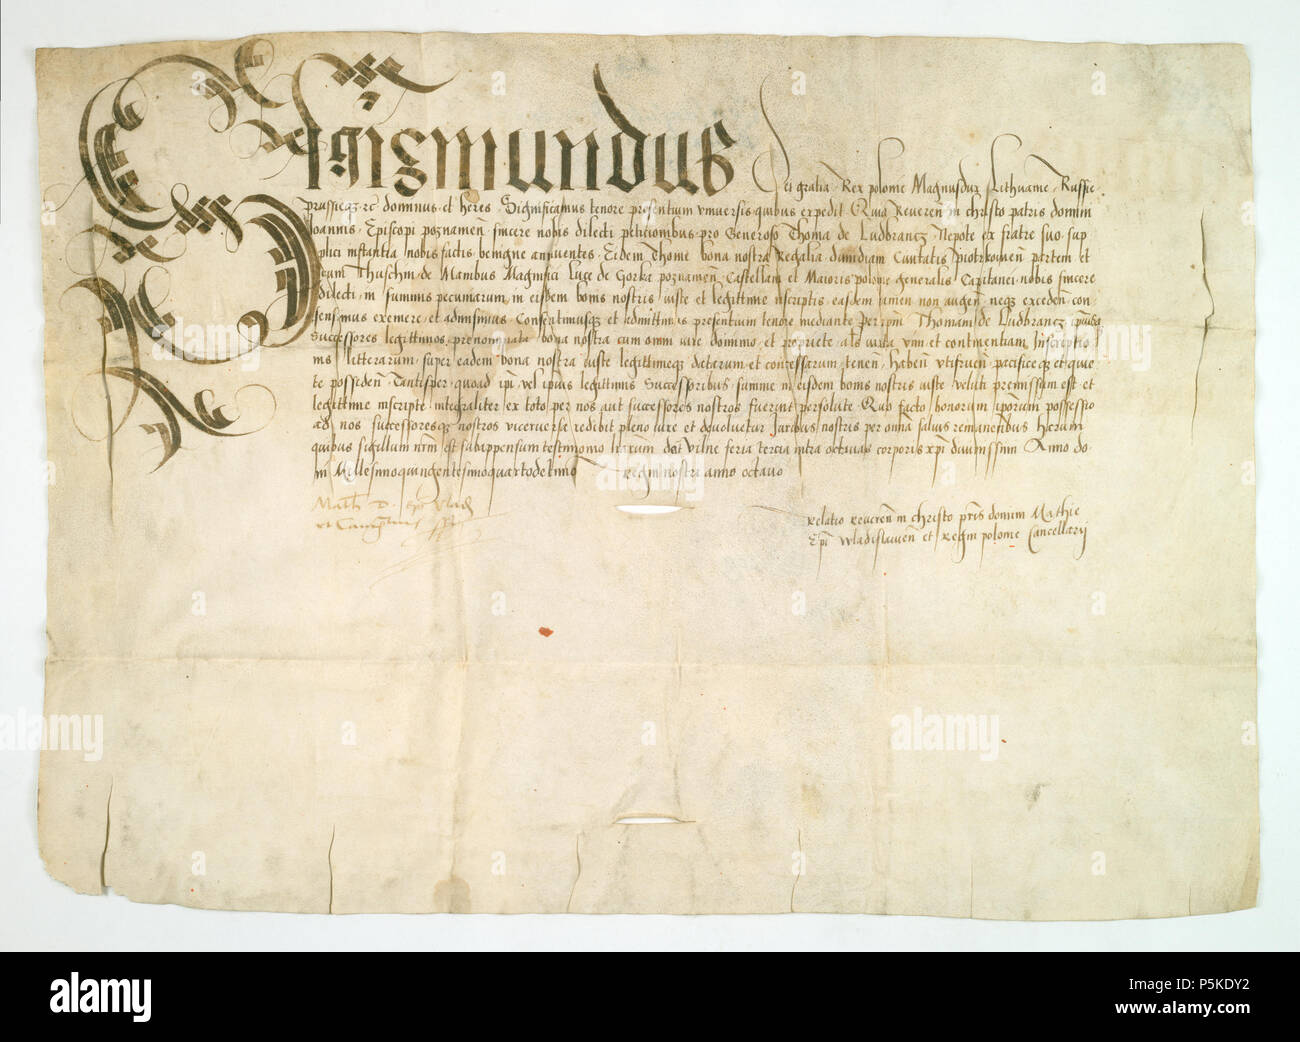 Sigismundus Dei gratia Rex polonie Magnusdux Lithuanie Russie
prussieqz rc domnus et heres Significamus tenore presentium vniuersis quibus expedit Quia Reueren in christo patris domini
Ioannis Episcopi poznamen sincere nobis dilecti peticionibus pro Generoso Thoma de Ludbrancz Nepote ex fratre suo sup
plici instantia nobis factis benigne annuentes Eidem Thome bona nostra Regalia dimidiam Ciuitatis piotrkomen partem et
cum Thuschin de Manibus Magnifici Luce de Gorka poznamen Castellani et Maioris polonie generalis Capitanei nobis sincere
dilecti in summis pecuniarum in eisdem bonis nostris iuste et legittime inscriptis easdem tamen non augen neqz exceden con
sensimus exemere et admisimus Consentimusqz et admittimus presentium tenore mediante per ipm Thomam de Ludbrancz
Successores legittimos prenominata bona nostra cum omni iure dominio et propriete als iuxta vim et continentiam Inscriptio
nis litterarum super eadem bona nostra iuste legittimeqz datarum et concessarum tenen Haben vtifruen pacificeqz et quie
te possiden Tantisper quoad ipi vel ipius legittimis Successoribus summe in eisdem bonis nostris iuste veluti premissum est et
legittime inscripte integraliter ex toto per nos aut successores nostros fuerint persolute Quo facto bonorum iporum possessio
ad nos successoresqz nostros viceuersa redibit pleno iure et deuoluetur Iuribus nostris per omnia saluis remanentibus Harum
quibus sigillum nrm est subappensum testimonio lrarum Dat vilne feria tercia infra octauas corporis xpi diuinissimi Anno do
mini Millesimoquingentesimoquartodecimo Regni nostri anno octauo
Math D epi vlad
et Canc
Relatio Reueren in christo pris domini Mathie
Epi wladislauien et Regni polonie Cancellarij
alamy
alamy
alamy
alamy
Image ID: P5KDY2
www.alamy.com